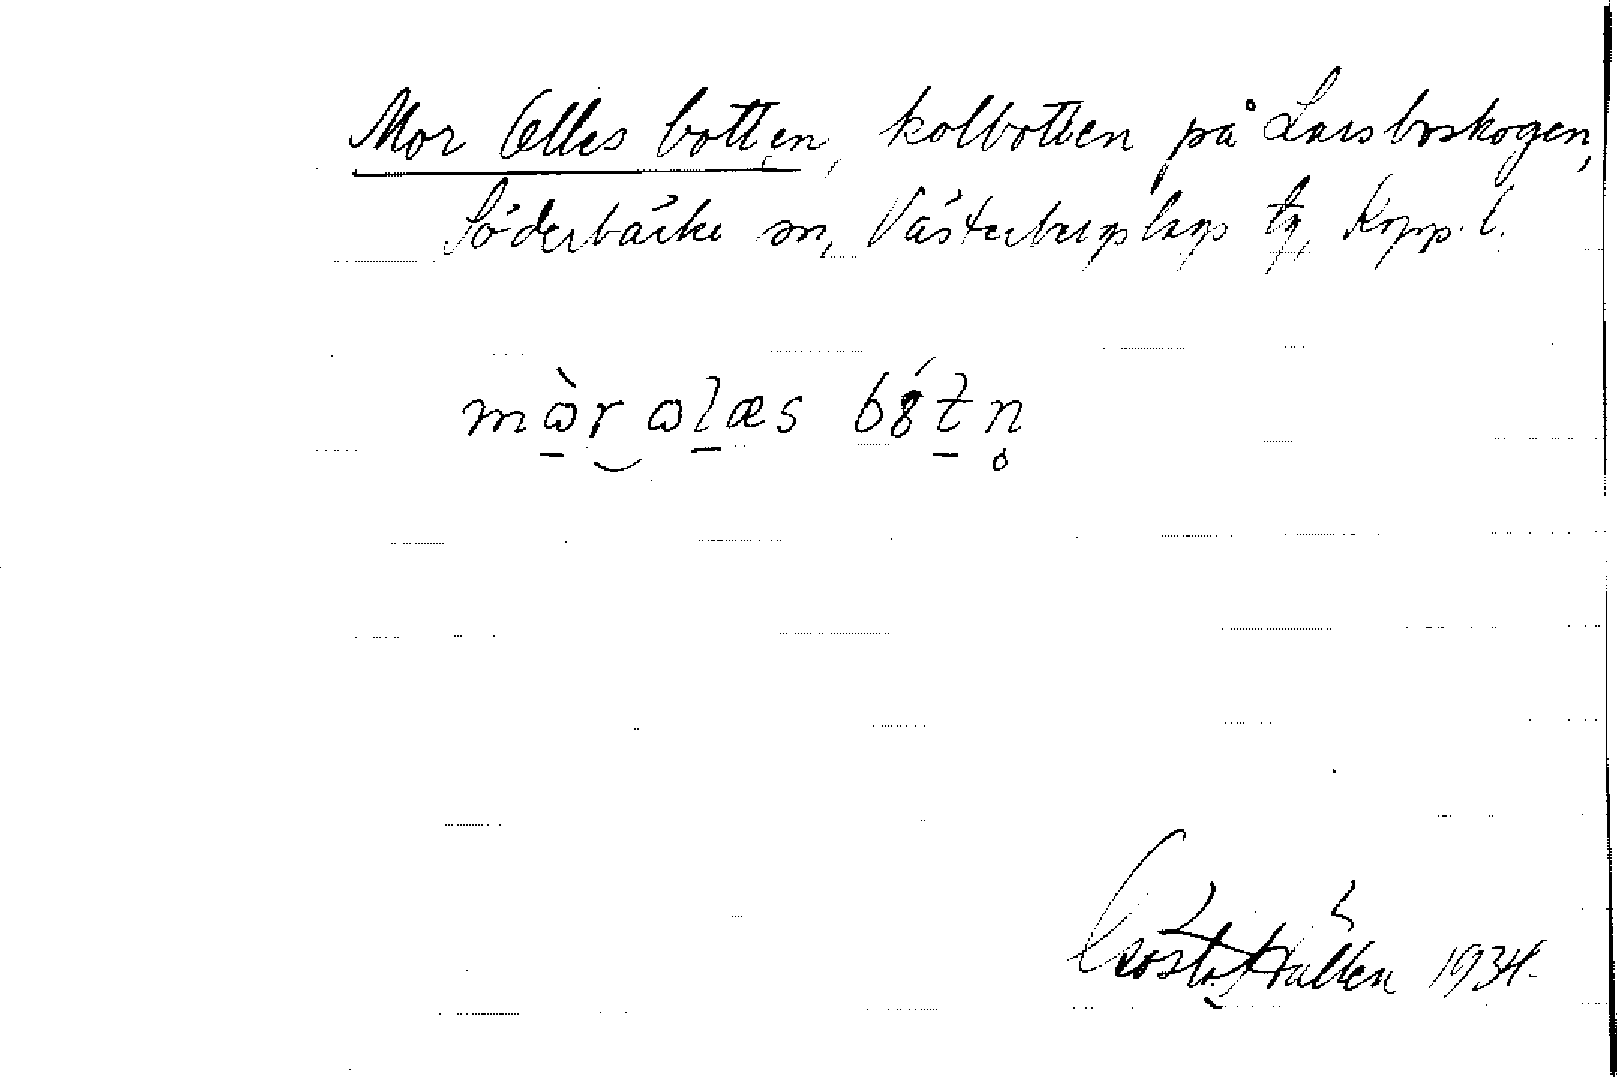 Mor Olles botten, kolbotten på Larsboskogen,
Söderbärke sn, Västerbergslags tg, Kopp. l.
mɷ̀r ɷlæs bótn̥
Gösta Hallén 1934.